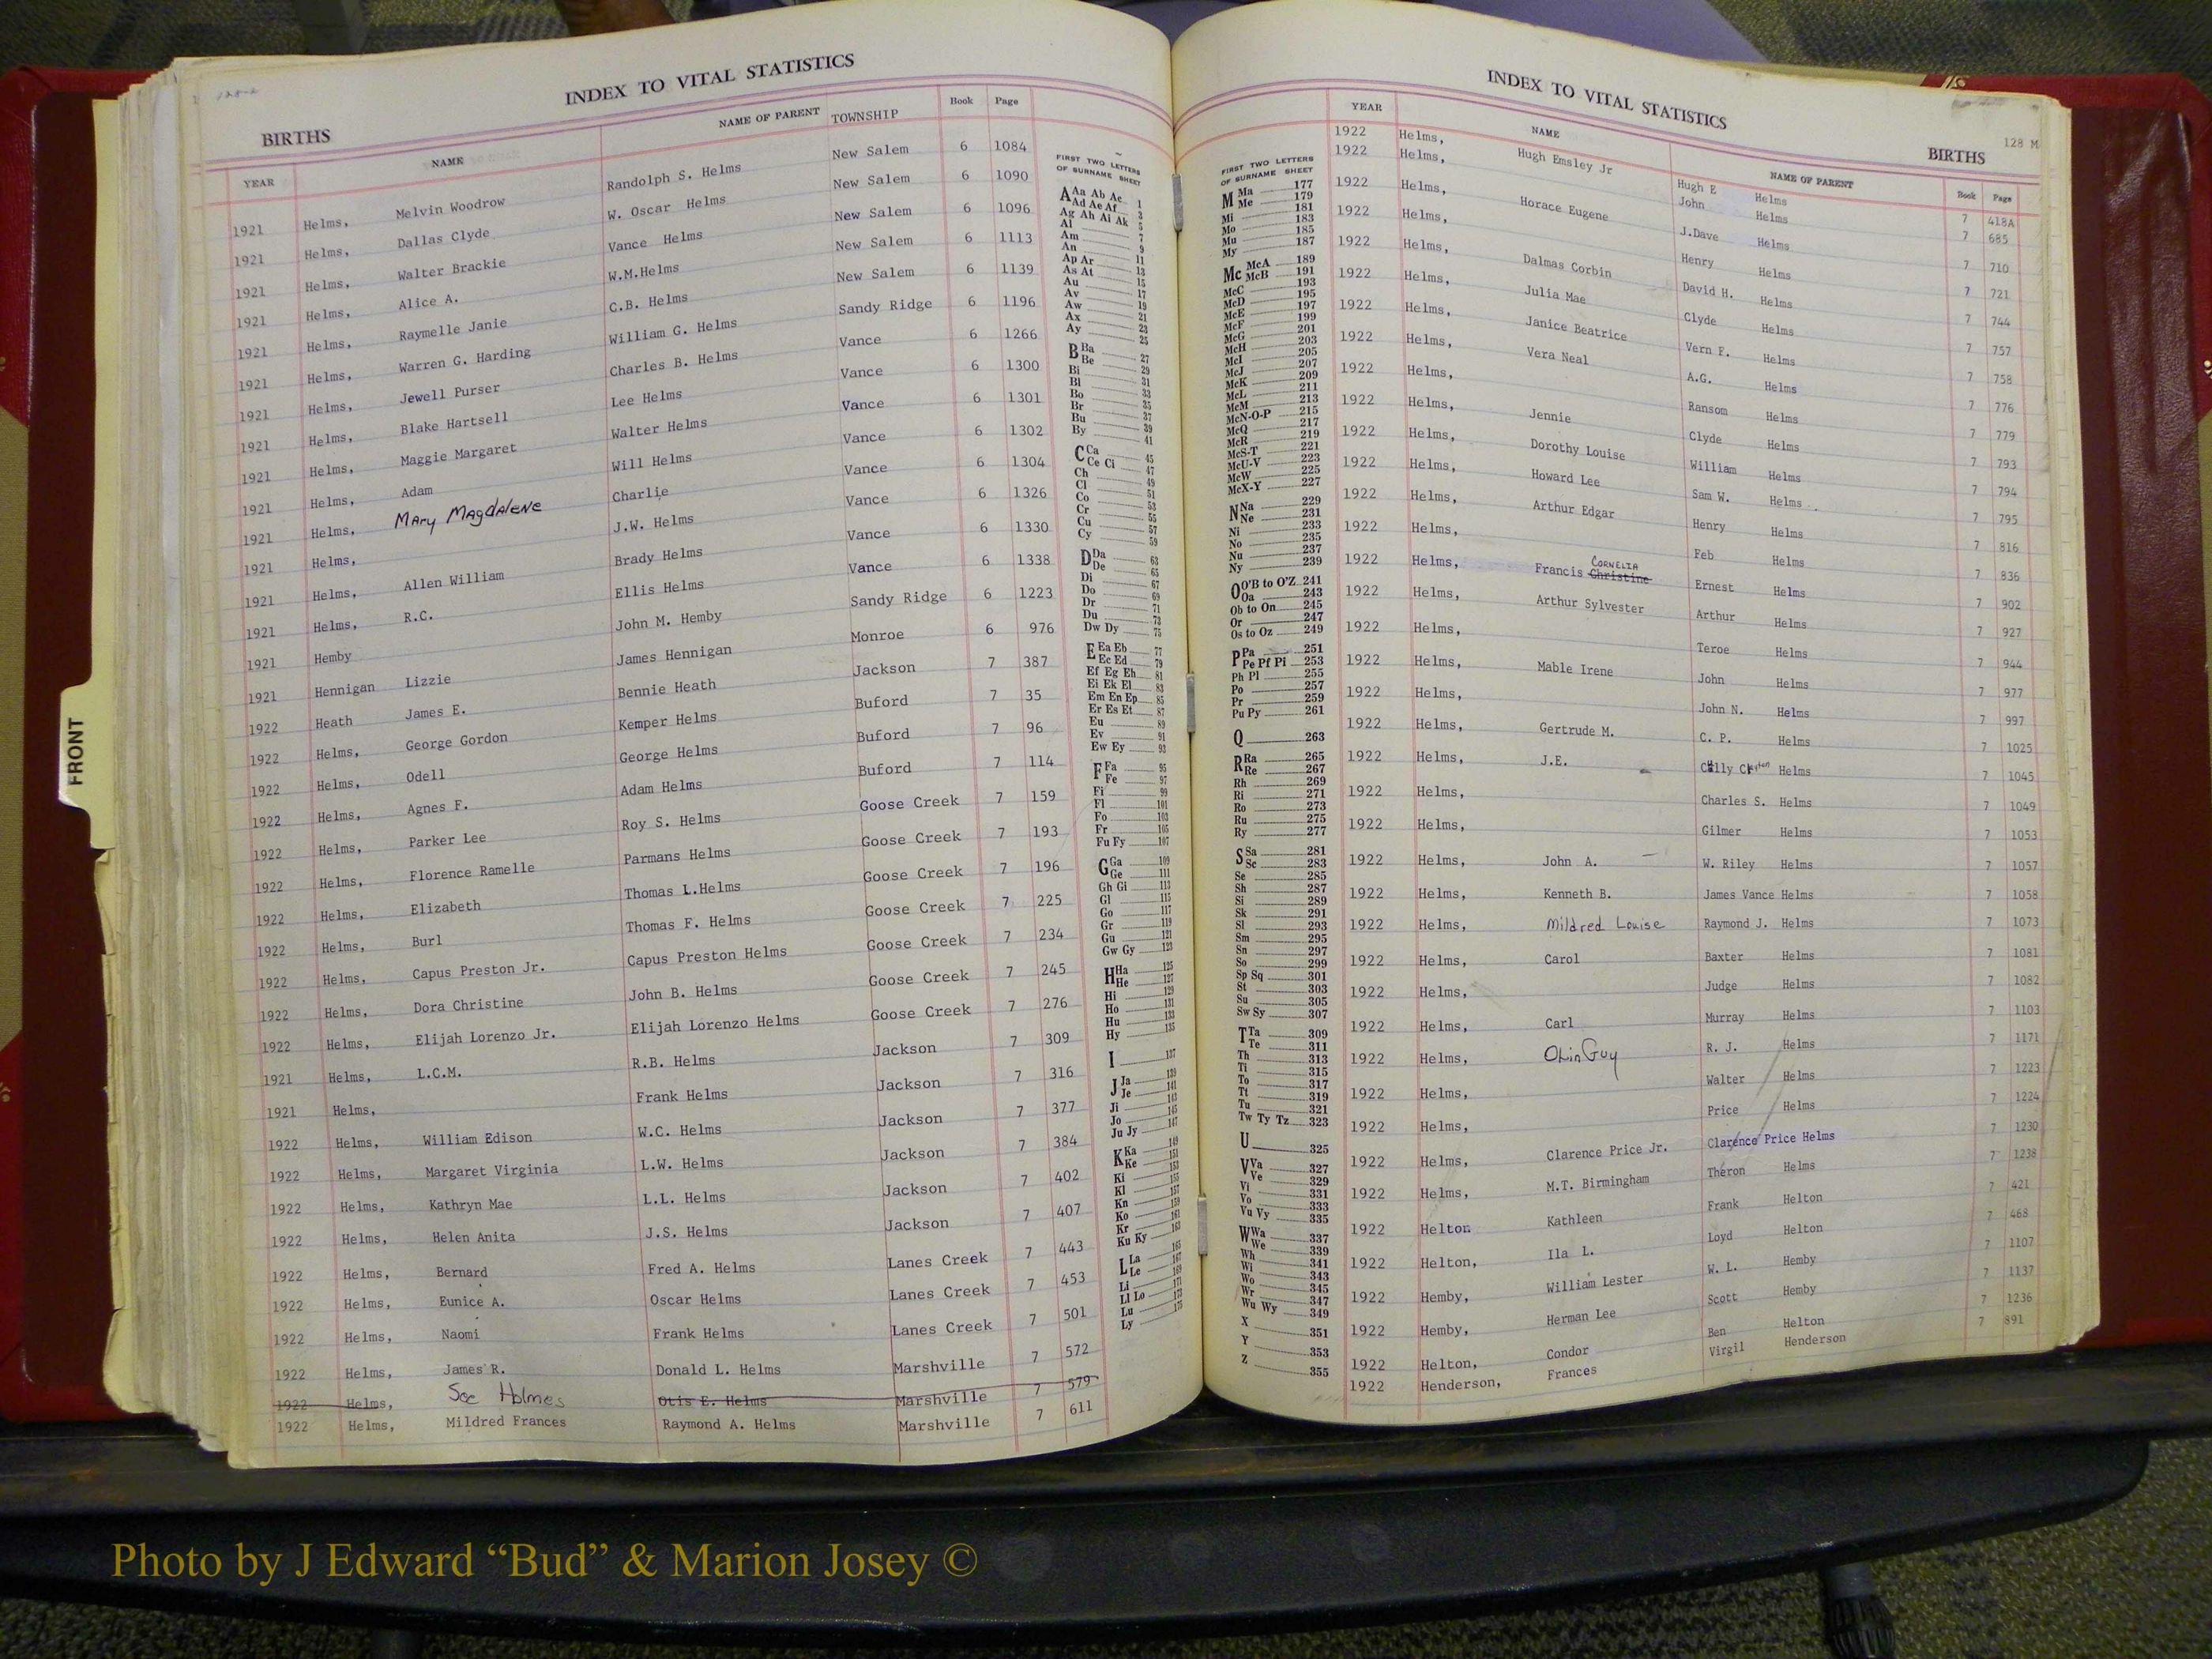 INDEX TO VITAL STATISTICS
BIRTHS
YEAR NAME NAME OF PARENT TOWNSHIP Book Page
1921 Helms, Melvin Woodrow Randolph S. Helms New Salem 6 1084
1921 Helms, Dallas Clyde W. Oscar Helms New Salem 6 1090
1921 Helms, Walter Brackie Vance Helms New Salem 6 1096
1921 Helms, Alice A. W.M.Helms New Salem 6 1113
1921 Helms, Raymelle Janie C.B. Helms New Salem 6 1139
1921 Helms, Warren G. Harding William G. Helms Sandy Ridge 6 1196
1921 Helms, Jewell Purser Charles B. Helms Vance 6 1266
1921 Helms, Blake Hartsell Lee Helms Vance 6 1300
1921 Helms, Maggie Margaret Walter Helms Vance 6 1301
1921 Helms, Adam Will Helms Vance 6 1302
1921 Helms, Mary Magdalene Charlie Vance 6 1304
1921 Helms, J.W. Helms Vance 6 1326
1921 Helms, Allen William Brady Helms Vance 6 1330
1921 Helms, R.C. Ellis Helms Vance 6 1338
1921 Hemby John M. Hemby Sandy Ridge 6 1223
1921 Hennigan Lizzie James Hennigan Monroe 6 976
1922 Heath James E. Bennie Heath Jackson 7 387
1922 Helms, George Gordon Kemper Helms Buford 7 35
1922 Helms, Odell George Helms Buford 7 96
1922 Helms, Agnes F. Adam Helms Buford 7 114
1922 Helms, Parker Lee Roy S. Helms Goose Creek 7 159
1922 Helms, Florence Ramelle Parmans Helms Goose Creek 7 193
1922 Helms, Elizabeth Thomas L.Helms Goose Creek 7 196
1922 Helms, Burl Thomas F. Helms Goose Creek 7 225
1922 Helms, Capus Preston Jr. Capus Preston Helms Goose Creek 7 234
1922 Helms, Dora Christine John B. Helms Goose Creek 7 245
1922 Helms, Elijah Lorenzo Jr. Elijah Lorenzo Helms Goose Creek 7 276
1921 Helms, L.C.M. R.B. Helms Jackson 7 309
1921 Helms, Frank Helms Jackson 7 316
1922 Helms, William Edison W.C. Helms Jackson 7 377
1922 Helms, Margaret Virginia L.W. Helms Jackson 7 384
1922 Helms, Kathryn Mae L.L. Helms Jackson 7 402
1922 Helms, Helen Anita J.S. Helms Jackson 7 407
1922 Helms, Bernard Fred A. Helms Lanes Creek 7 443
1922 Helms, Eunice A. Oscar Helms Lanes Creek 7 453
1922 Helms, Naomi Frank Helms Lanes Creek 7 501
1922 Helms, James R. Donald L. Helms Marshville 7 572
1922 Helms, See Holmes Otis E. Helms Marshville 7 579
1922 Helms, Mildred Frances Raymond A. Helms Marshville 7 611
FRONT
FIRST TWO LETTERS
OF SURNAME SHEET
A Aa Ab Ac 1
Ad Ae Af 3
Ag Ah Ai Ak 5
Al 7
Am 9
An 11
Ap Ar 13
As At 15
Au 17
Av 19
Aw 21
Ax 23
Ay 25
B Ba 27
Be 29
Bi 31
Bl 33
Bo 35
Br 37
Bu 39
By 41
C Ca 45
Ce Ci 47
Ch 49
Cl 51
Co 53
Cr 55
Cu 57
Cy 59
D Da 63
De 65
Di 67
Do 69
Dr 71
Du 73
Dw Dy 75
E Ea Eb 77
Ec Ed 79
Ef Eg Eh 81
Ei Ek El 83
Em En Ep 85
Er Es Et 87
Eu 89
Ev 91
Ew Ey 93
F Fa 95
Fe 97
Fi 99
Fl 101
Fo 103
Fr 105
Fu Fy 107
G Ga 109
Ge 111
Gh Gi 113
Gl 115
Go 117
Gr 119
Gu 121
Gw Gy 123
H Ha 125
He 127
Hi 129
Ho 131
Hu 133
Hy 135
I 137
J Ja 139
Je 141
Ji 143
Jo 145
Ju Jy 147
K Ka 149
Ke 151
Ki 153
Kl 155
Kn 157
Ko 159
Kr 161
Ku Ky 163
L La 165
Le 167
Li 169
Ll Lo 171
Lu 173
Ly 175
FIRST TWO LETTERS
OF SURNAME SHEET
M Ma 177
Me 179
Mi 181
Mo 183
Mu 185
My 187
Mc McA 189
McB 191
McC 193
McD 195
McE 197
McF 199
McG 201
McH 203
McI 205
McJ 207
McK 209
McL 211
McM 213
McN-O-P 215
McQ 217
McR 219
McS-T 221
McU-V 223
McW 225
McX-Y 227
N Na 229
Ne 231
Ni 233
No 235
Nu 237
Ny 239
O O'B to O'Z 241
Oa 243
Ob to On 245
Or 247
Os to Oz 249
P Pa 251
Pe Pf Pi 253
Ph Pl 255
Po 257
Pr 259
Pu Py 261
Q 263
R Ra 265
Re 267
Rh 269
Ri 271
Ro 273
Ru 275
Ry 277
S Sa 281
Sc 283
Se 285
Sh 287
Si 289
Sk 291
Sl 293
Sm 295
Sn 297
So 299
Sp Sq 301
St 303
Su 305
Sw Sy 307
T Ta 309
Te 311
Th 313
Ti 315
To 317
Tt 319
Tu 321
Tw Ty Tz 323
U 325
V Va 327
Ve 329
Vi 331
Vo 333
Vu Vy 335
W Wa 337
We 339
Wh 341
Wi 343
Wo 345
Wr 347
Wu Wy 349
X 351
Y 353
Z 355
INDEX TO VITAL STATISTICS
128 M
BIRTHS
YEAR NAME NAME OF PARENT Book Page
1922 Helms, Hugh Emsley Jr Hugh E Helms 7 418A
1922 Helms, John Helms 7 685
1922 Helms, Horace Eugene J.Dave Helms 7 710
1922 Helms, Henry Helms 7 721
1922 Helms, Dalmas Corbin David H. Helms 7 744
1922 Helms, Julia Mae Clyde Helms 7 757
1922 Helms, Janice Beatrice Vern F. Helms 7 758
1922 Helms, Vera Neal A.G. Helms 7 776
1922 Helms, Ransom Helms 7 779
1922 Helms, Jennie Clyde Helms 7 793
1922 Helms, Dorothy Louise William Helms 7 794
1922 Helms, Howard Lee Sam W. Helms 7 795
1922 Helms, Arthur Edgar Henry Helms 7 816
1922 Helms, Feb Helms 7 836
1922 Helms, Francis Christine CORNELIA Ernest Helms 7 902
1922 Helms, Arthur Sylvester Arthur Helms 7 927
1922 Helms, Teroe Helms 7 944
1922 Helms, Mable Irene John Helms 7 977
1922 Helms, John N. Helms 7 997
1922 Helms, Gertrude M. C. P. Helms 7 1025
1922 Helms, J.E. Helms 7 1045
1922 Helms, Charles S. Helms 7 1049
1922 Helms, Gilmer Helms 7 1053
1922 Helms, John A. W. Riley Helms 7 1057
1922 Helms, Kenneth B. James Vance Helms 7 1058
1922 Helms, Mildred Louise Raymond J. Helms 7 1073
1922 Helms, Carol Baxter Helms 7 1081
1922 Helms, Judge Helms 7 1082
1922 Helms, Carl Murray Helms 7 1103
1922 Helms, Olin Guy R. J. Helms 7 1171
1922 Helms, Walter Helms 7 1223
1922 Helms, Price Helms 7 1224
1922 Helms, Clarence Price Jr. Clarence Price Helms 7 1230
1922 Helms, M.T. Birmingham Theron Helms 7 1238
1922 Helton Kathleen Frank Helton 7 421
1922 Helton, Ila L. Loyd Helton 7 468
1922 Hemby, William Lester W. L. Hemby 7 1107
1922 Hemby, Herman Lee Scott Hemby 7 1137
1922 Helton, Condor Ben Helton 7 1236
1922 Henderson, Frances Virgil Henderson 7 891
Photo by J Edward “Bud” & Marion Josey ©